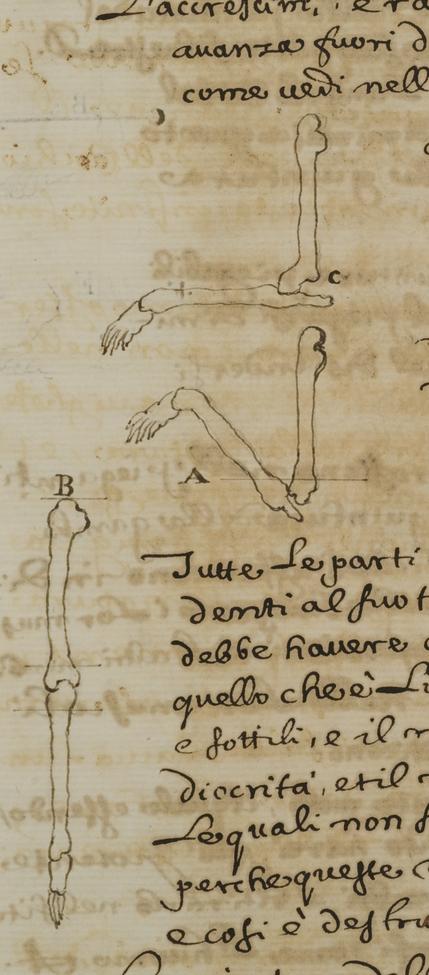 L'accrescim. e ra
avanza fuori d
come vedi nell
C
A
B
Tutte Le parti
denti al suo t
debbe havere
quello che è Li
e sottili, e il m
diocrità, et il
Le quali non s
perche queste
e cosi è destru